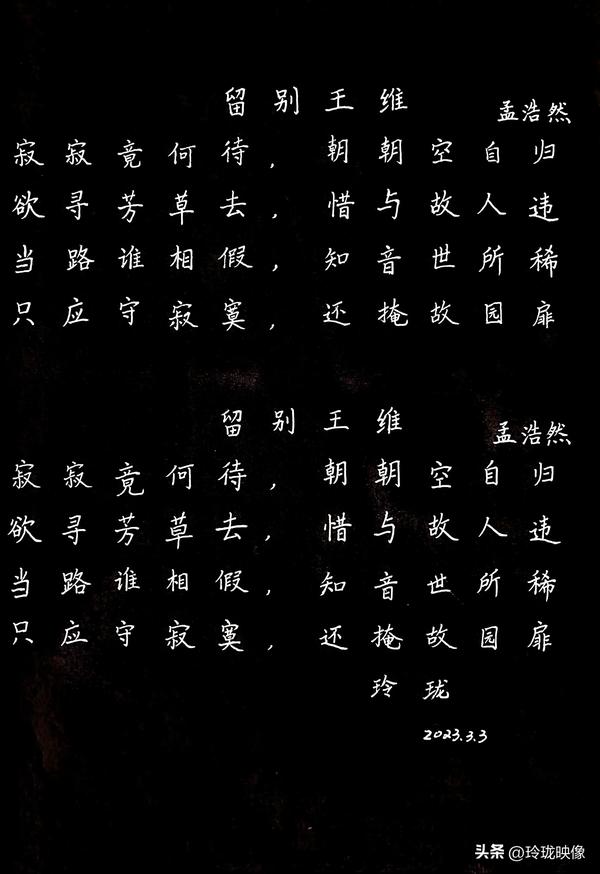 留别王维 孟浩然
寂寂竟何待，朝朝空自归
欲寻芳草去，惜与故人违
当路谁相假，知音世所稀
只应守寂寞，还掩故园扉
留别王维 孟浩然
寂寂竟何待，朝朝空自归
欲寻芳草去，惜与故人违
当路谁相假，知音世所稀
只应守寂寞，还掩故园扉
玲珑
2023.3.3
头条 @玲珑映像